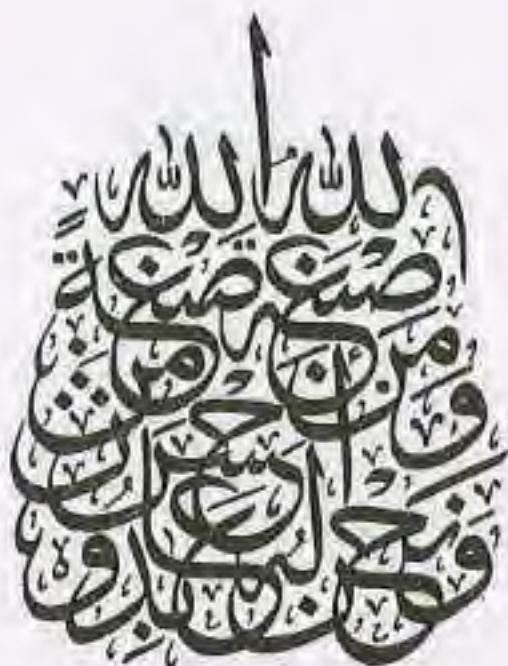 صِبْغَةَ اللهِ وَمَنْ أَحْسَنُ مِنَ اللهِ صِبْغَةً وَنَحْنُ لَهُ عَابِدُونَ